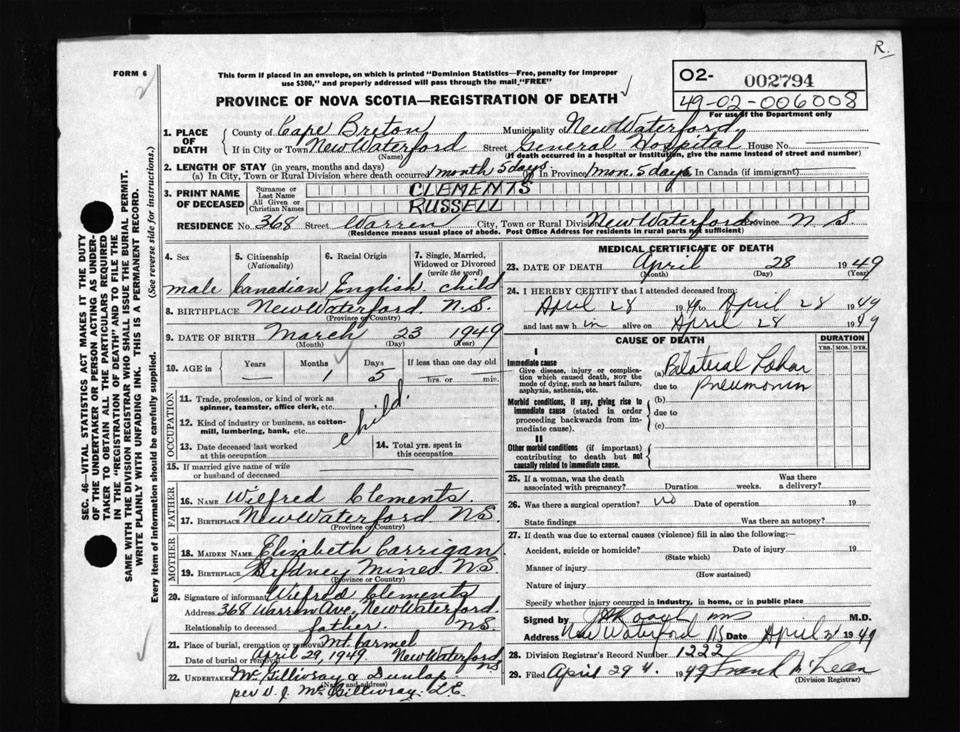 R.
FORM 6
This form if placed in an envelope, on which is printed "Dominion Statistics—Free, penalty for improper
use $300," and properly addressed will pass through the mail "FREE"
PROVINCE OF NOVA SCOTIA—REGISTRATION OF DEATH
02- 002794
49-02-006008
For use of the Department only
SEC. 46—VITAL STATISTICS ACT MAKES IT THE DUTY
OF THE UNDERTAKER OR PERSON ACTING AS UNDER-
TAKER TO OBTAIN ALL THE PARTICULARS REQUIRED
IN THE "REGISTRATION OF DEATH" AND TO FILE THE
SAME WITH THE DIVISION REGISTRAR WHO SHALL ISSUE THE BURIAL PERMIT.
WRITE PLAINLY WITH UNFADING INK. THIS IS A PERMANENT RECORD.
Every item of information should be carefully supplied. (See reverse side for instructions.)
1. PLACE OF DEATH County of Cape Breton Municipality New Waterford
If in City or Town New Waterford Street General Hospital House No.
(Name) (If death occurred in a hospital or institution, give the name instead of street and number)
2. LENGTH OF STAY (in years, months and days)
(a) In City, Town or Rural Division where death occurred 1 month 5 days (b) In Province 1 mon. 5 days In Canada (if immigrant)
3. PRINT NAME OF DECEASED Surname or Last Name CLEMENTS
All Given or Christian Names RUSSELL
RESIDENCE No. 368 Street Warren City, Town or Rural Division New Waterford Province N S
(Residence means usual place of abode. Post Office Address for residents in rural parts not sufficient)
4. Sex 5. Citizenship (Nationality) 6. Racial Origin 7. Single, Married, Widowed or Divorced (write the word)
male Canadian English. child
8. BIRTHPLACE New Waterford. N.S.
(Province or Country)
9. DATE OF BIRTH March 23 1949
(Month) (Day) (Year)
10. AGE in Years Months Days If less than one day old
— 1 5 hrs. or min.
OCCUPATION
11. Trade, profession, or kind of work as
spinner, teamster, office clerk, etc.
child.
12. Kind of industry or business, as cotton-
mill, lumbering, bank, etc.
13. Date deceased last worked
at this occupation
14. Total yrs. spent in
this occupation
15. If married give name of wife
or husband of deceased
FATHER
16. NAME Wilfred Clements.
17. BIRTHPLACE New Waterford NS.
(Province or Country)
MOTHER
18. MAIDEN NAME Elizabeth Carrigan
19. BIRTHPLACE Sydney Mines NS
(Province or Country)
20. Signature of informant Wilfred Clements
Address 368 Warren Ave, New Waterford.
Relationship to deceased father. NS.
21. Place of burial, cremation or removal Mt Carmel
Date of burial or removal April 29, 1949. New Waterford NS
22. UNDERTAKER McGillivray & Dunlap
(Name and address)
per J. McGillivray. L.E.
MEDICAL CERTIFICATE OF DEATH
23. DATE OF DEATH April 28 1949
(Month) (Day) (Year)
24. I HEREBY CERTIFY that I attended deceased from:
April 28 1949 to April 28 1949
and last saw h im alive on April 28 1949
CAUSE OF DEATH
DURATION
YRS. MOS. DYS.
I
Immediate cause
Give disease, injury or complica-
tion which caused death, not the
mode of dying, such as heart failure,
asphyxia, asthenia, etc.
(a) Bilateral Lobar
due to Pneumonia
Morbid conditions, if any, giving rise to
immediate cause (stated in order
proceeding backwards from im-
mediate cause).
(b)
due to
(c)
II
Other morbid conditions (if important)
contributing to death but not
causally related to immediate cause.
25. If a woman, was the death
associated with pregnancy? Duration weeks. Was there a delivery?
26. Was there a surgical operation? No Date of operation 19
State findings Was there an autopsy?
27. If death was due to external causes (violence) fill in also the following:
Accident, suicide or homicide? Date of injury 19
(State which)
Manner of injury
(How sustained)
Nature of injury
Specify whether injury occurred in industry, in home, or in public place
Signed by M.D.
Address New Waterford NS Date April 1949
28. Division Registrar's Record Number 1222
29. Filed April 29 1949 Frank McLean
(Division Registrar)